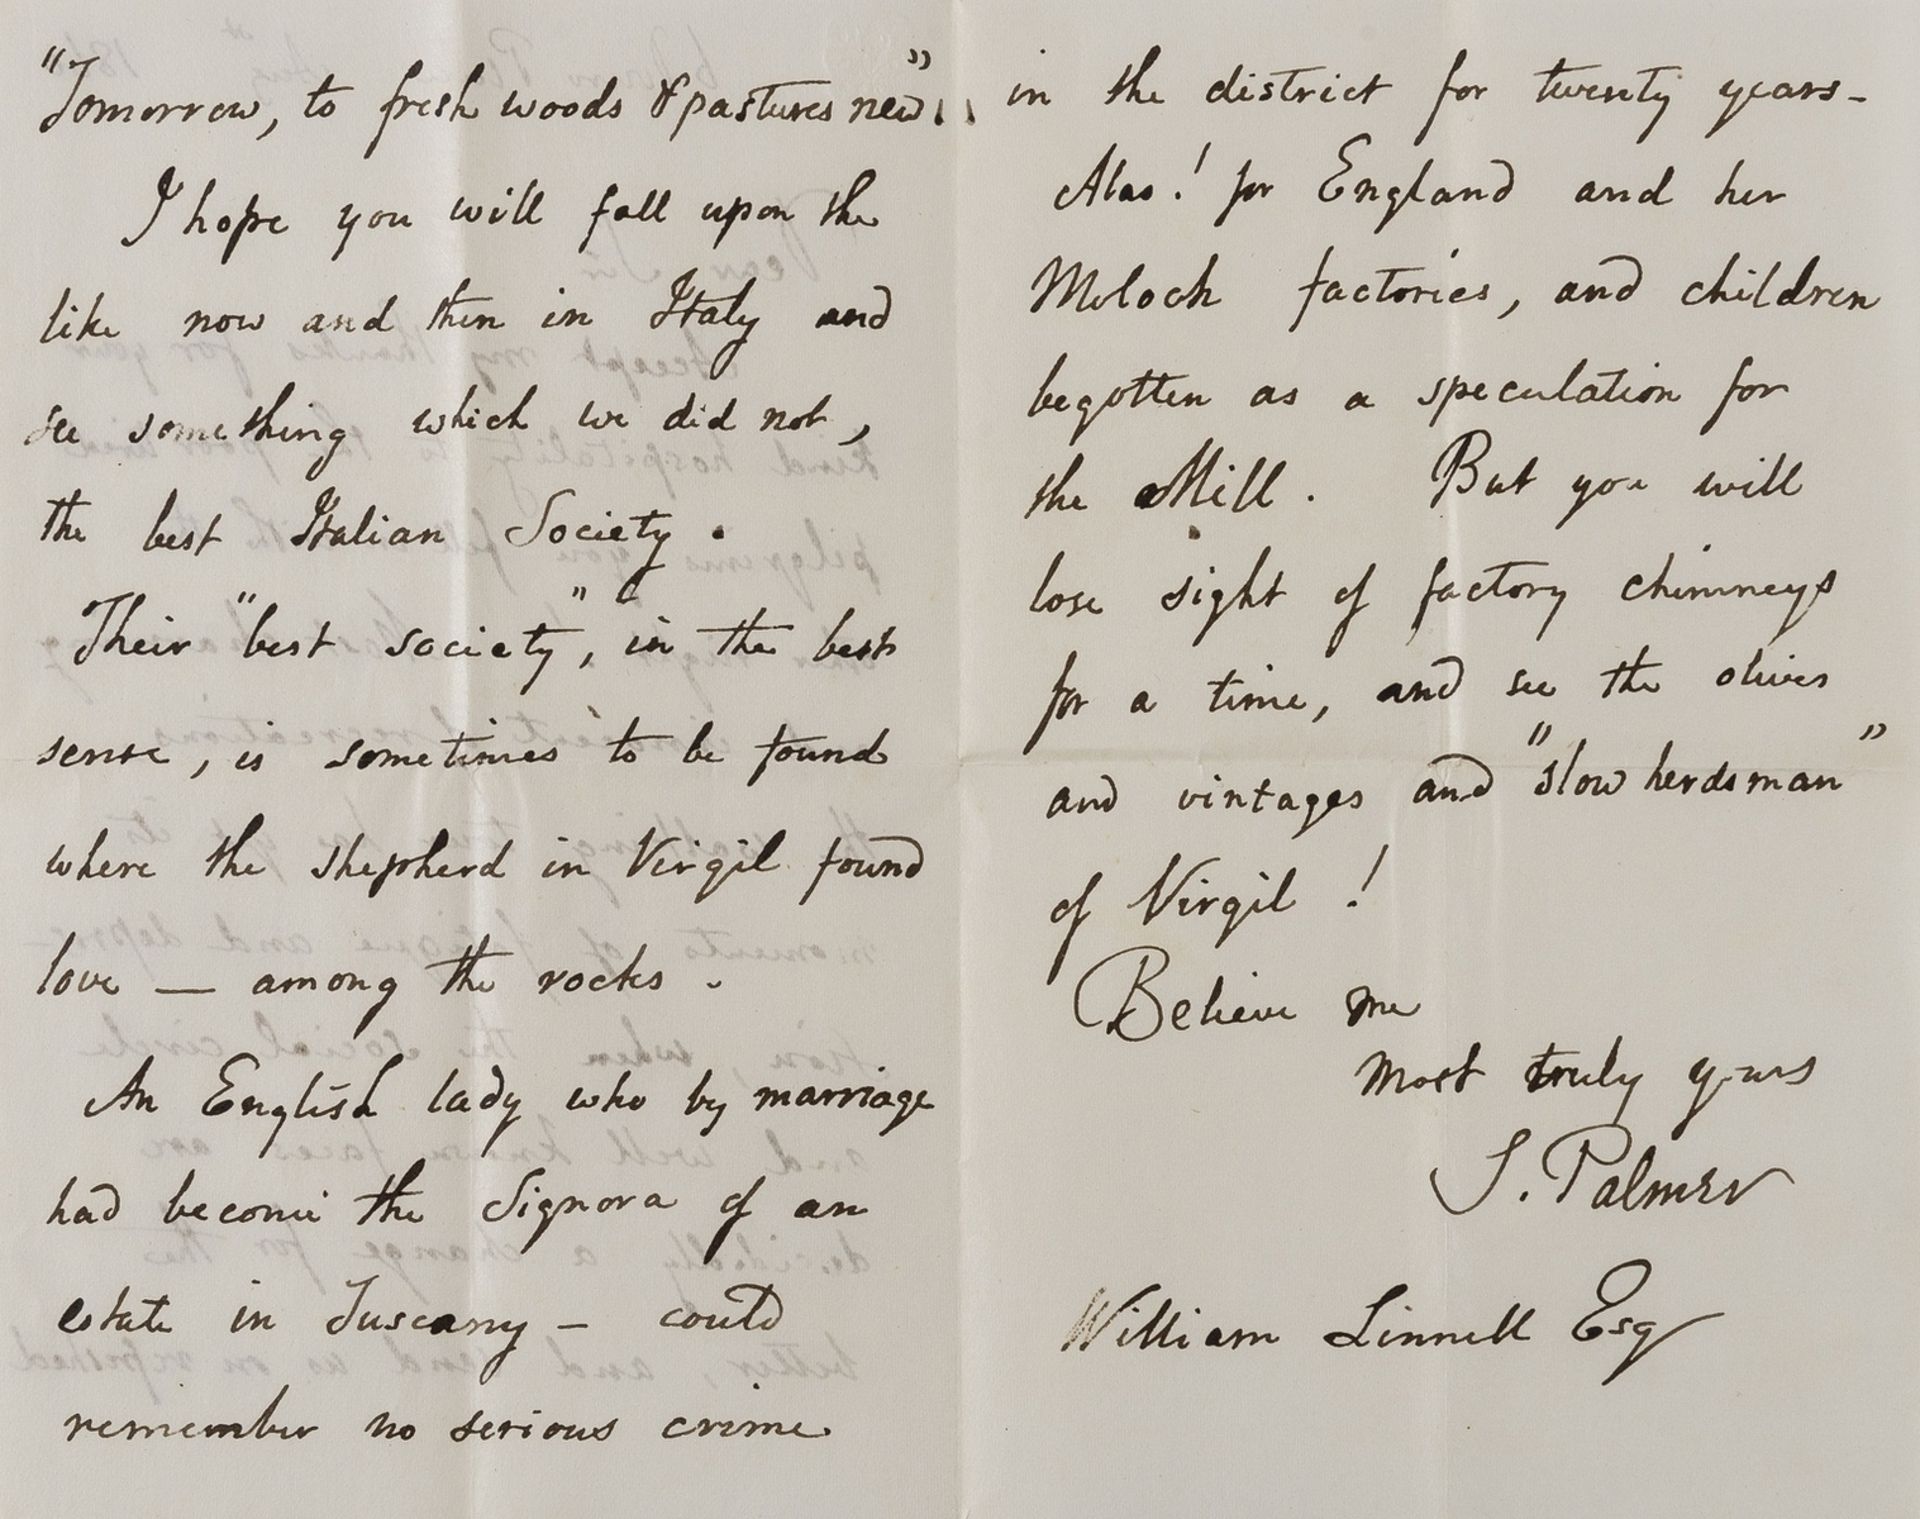 "Tomorrow, to fresh woods & pastures new".
I hope you will fall upon the
like now and then in Italy and
see something which we did not,
the best Italian Society.
Their "best society", in the best
sense, is sometimes to be found
where the shepherd in Virgil found
love — among the rocks.
An English lady who by marriage
had become the Signora of an
estate in Tuscany — could
remember no serious crime
in the district for twenty years-
Alas! for England and her
Moloch factories, and children
begotten as a speculation for
the Mill. But you will
lose sight of factory chimneys
for a time, and see the olives
and vintages and "slow herdsman"
of Virgil!
Believe me
most truly yours
S. Palmer
William Linnell Esq